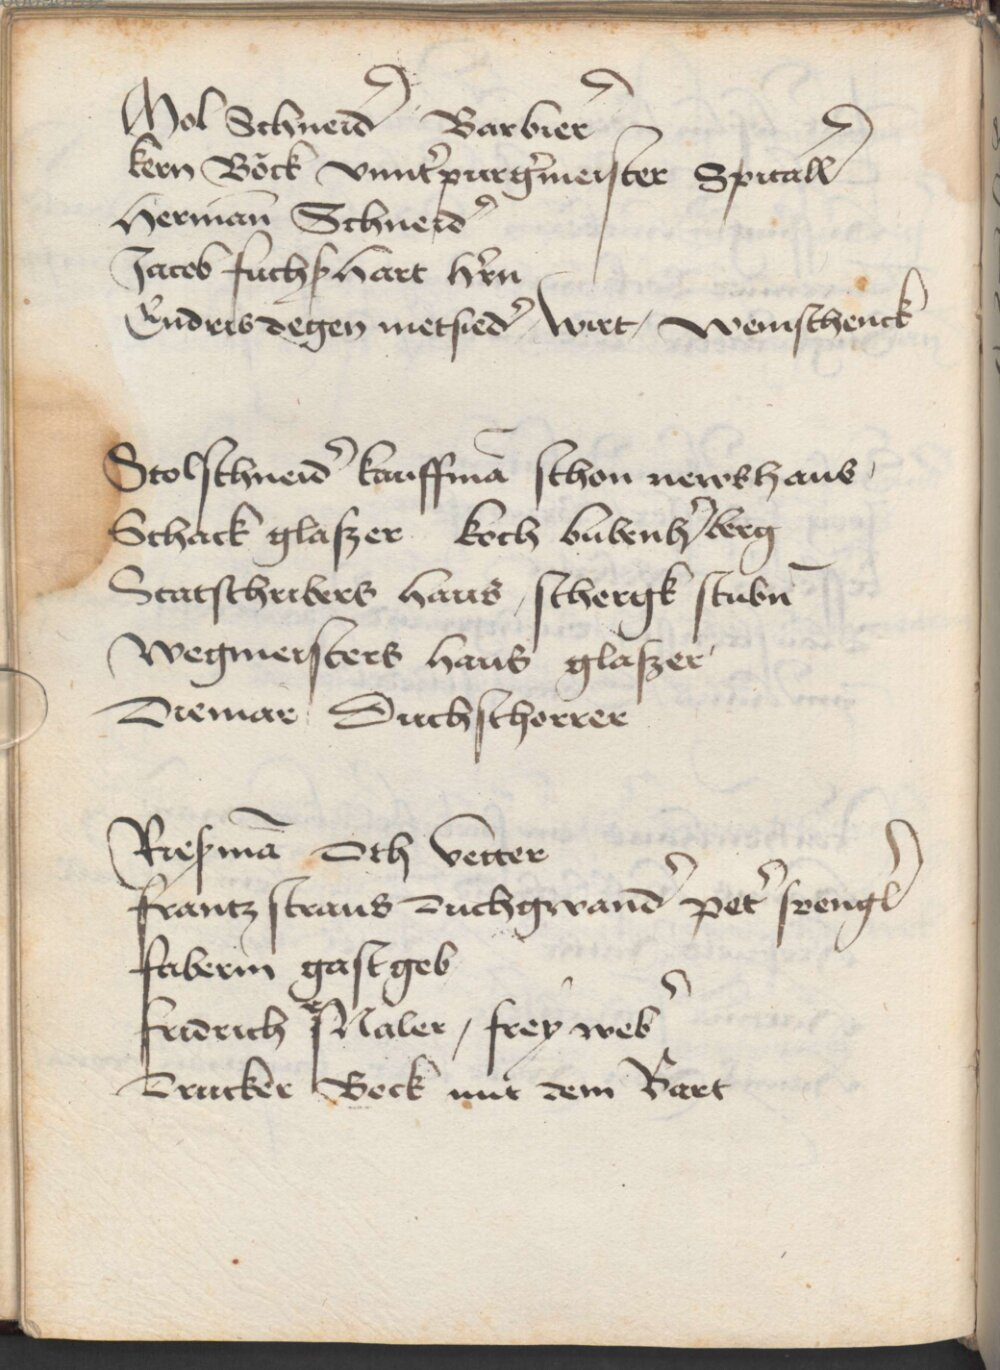 Mol Schneid' Barbier
kern Böck vnnt'purg'meister Spitall
Herman̄ Schneid'
Jacob fuchsz Hart h'rn
Endres degen metsied' / wirt / weinschenck
Stolschneid' kauffmā schon news haus
Schack glaszer koch bubenh'berg
Statschribers haus / schergk stubn̄
Wegmeisters haus glaszer
Diemar Duchschorrer
Riesmā Oth vetter
frantz straus Duchgwand' pet' spengl'
faberin gastgeb
fridrich Maler / frey web'
Drucker Bock mit dem Bart